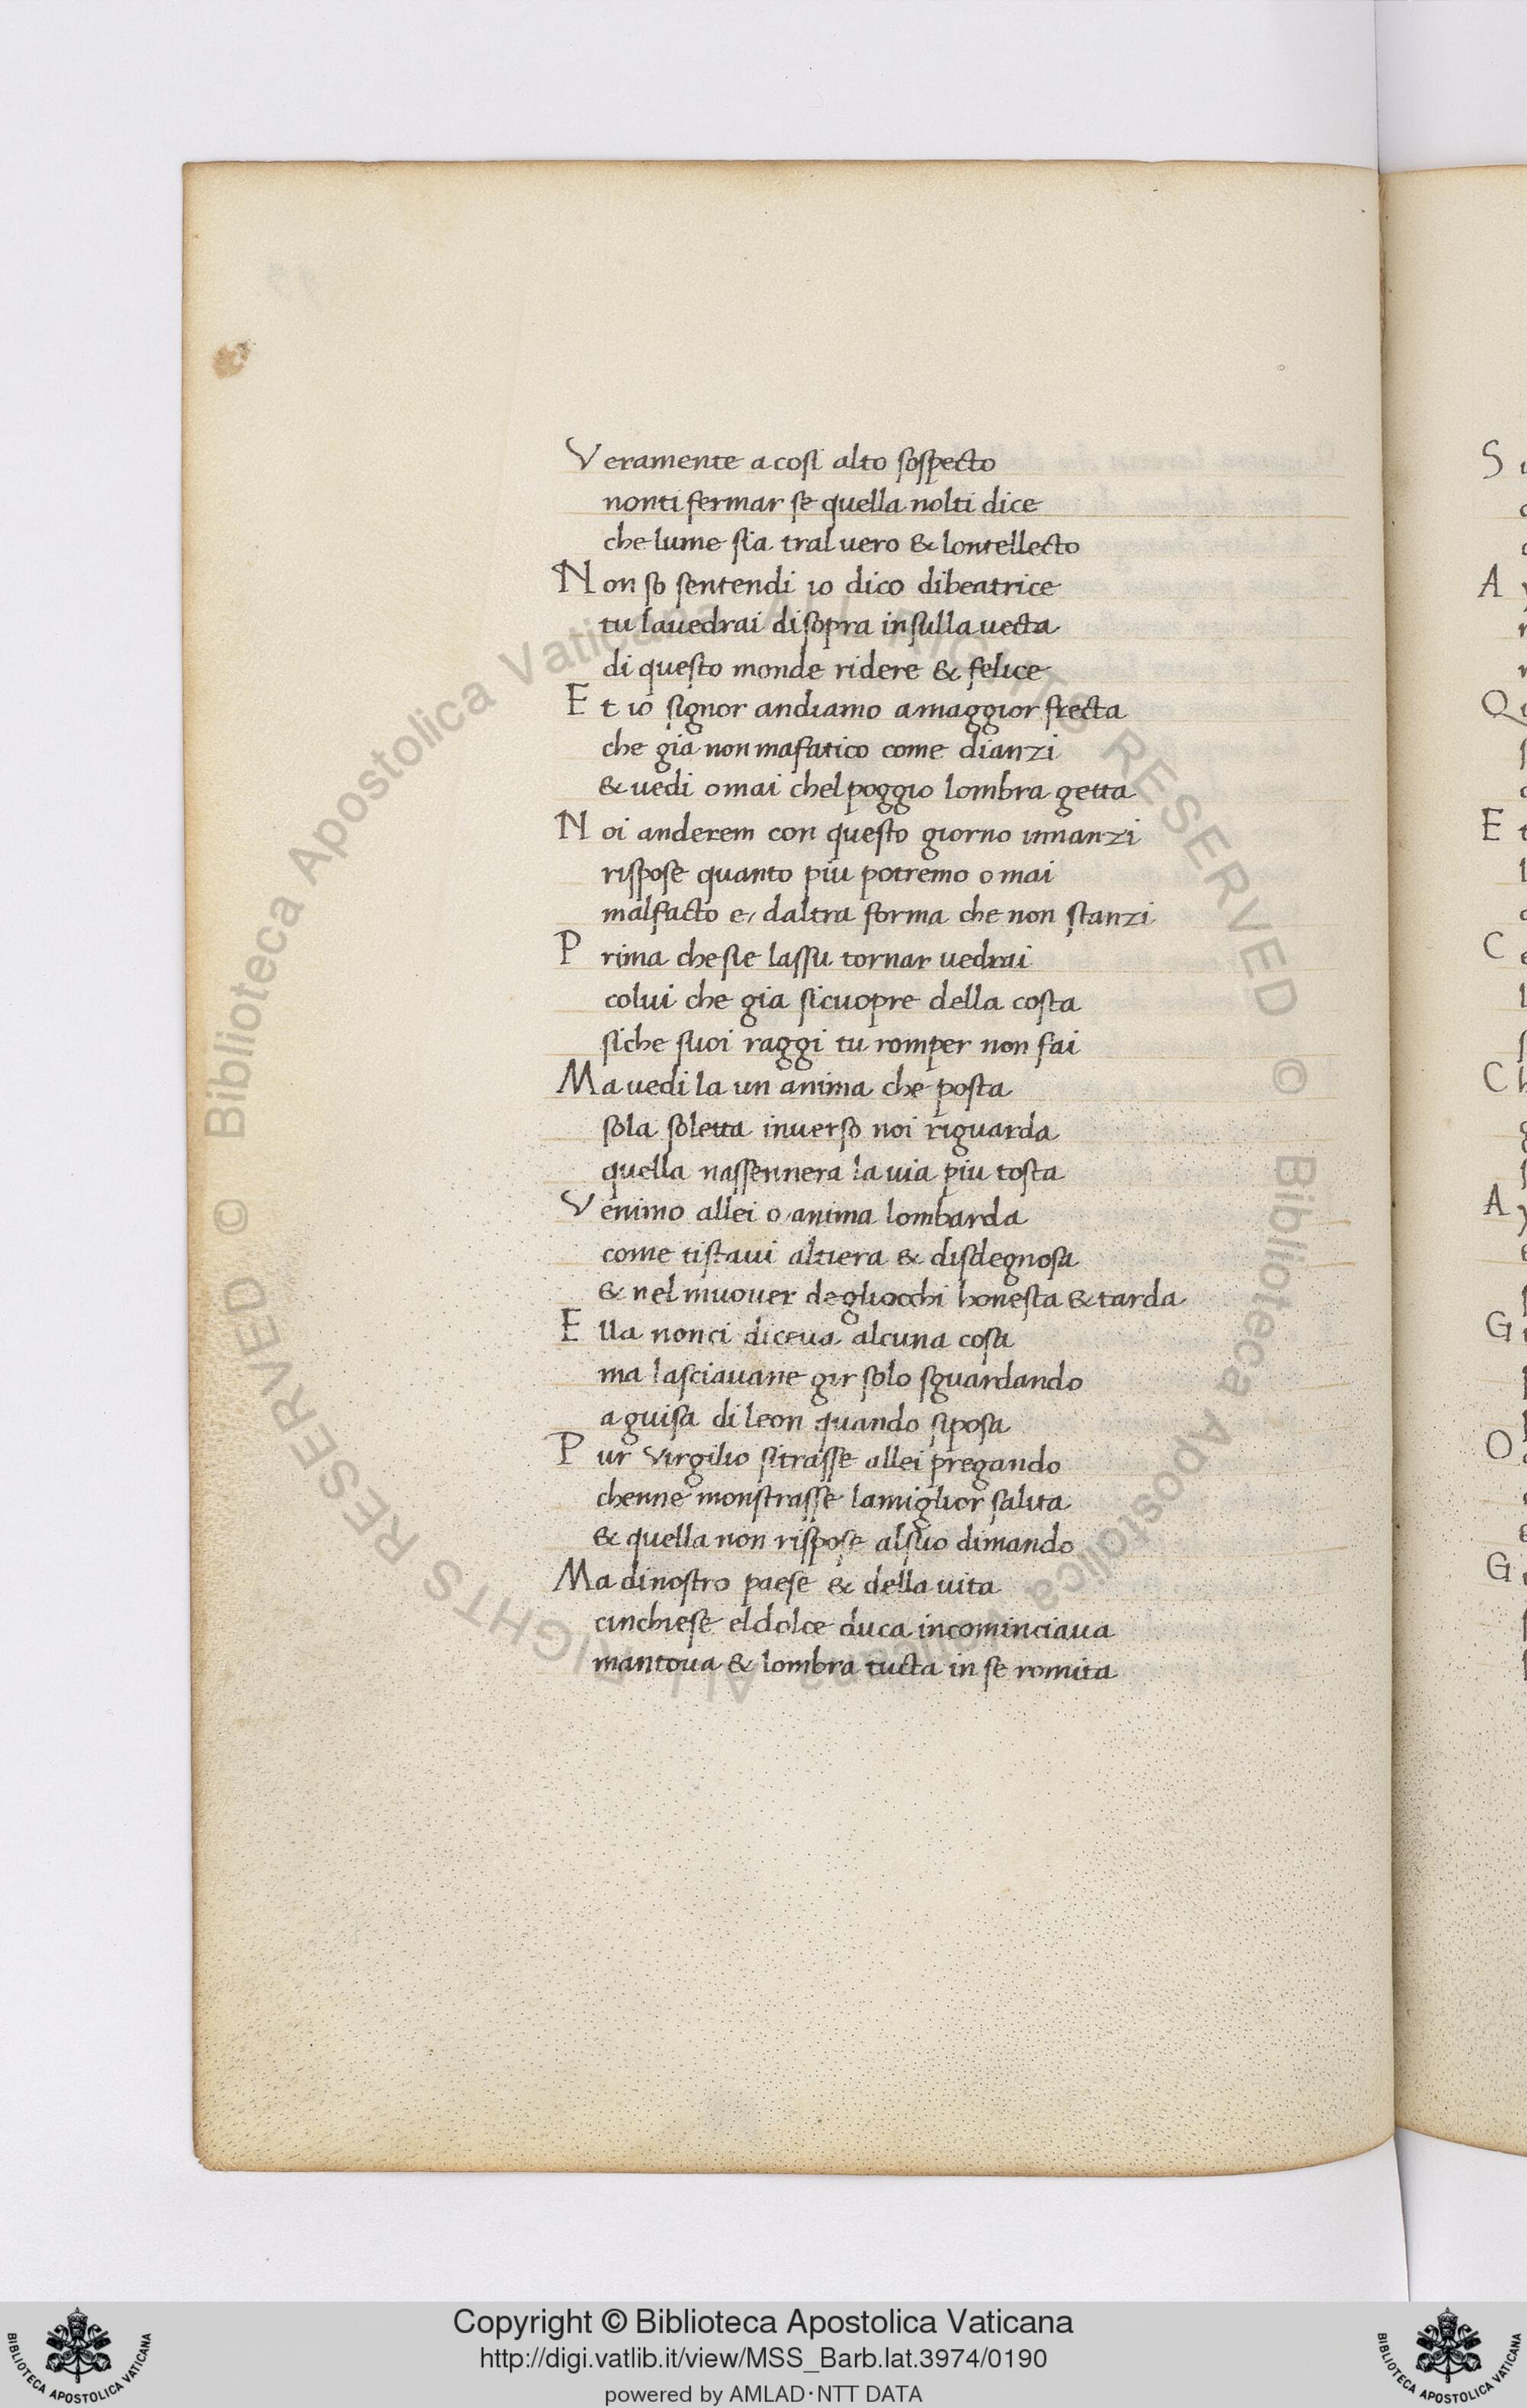 Veramente a cosi alto sospecto
nonti fermar se quella nolti dice
che lume sia tral uero & lontellecto
Non so sentendi io dico dibeatrice
tu lauedrai disopra insulla uecta
di questo monde ridere & felice
Et io signor andiamo amaggior frecta
che gia non mafatico come dianzi
& uedi omai chel poggio lombra getta
Noi anderem con questo giorno innanzi
rispose quanto piu potremo omai
malfacto e, daltra forma che non stanzi
Prima che sie lassu tornar uedrai
colui che gia sicuopre della costa
siche suoi raggi tu romper non fai
Ma uedi la un anima che posta
sola soletta inuerso noi riguarda
quella nassennera la uia piu tosta
Venimo allei o anima lombarda
come tistaui altiera & disdegnosa
& nel muouer degliocchi honesta & tarda
Ella nonci diceua alcuna cosa
ma lasciauane gir solo sguardando
a guisa di leon quando siposa
Pur Virgilio sitrasse allei pregando
chenne monstrasse lamiglior salita
& quella non rispose alsuo dimando
Ma dinostro paese & della uita
cinchiese eldolce duca incominciaua
mantoua & lombra tucta in se romita
S
A
Q
E t
C
C h
A
G
O
G
© Biblioteca Apostolica Vaticana ALL RIGHTS RESERVED © Biblioteca Apostolica Vaticana ALL RIGHTS RESERVED
Copyright © Biblioteca Apostolica Vaticana
http://digi.vatlib.it/view/MSS_Barb.lat.3974/0190
powered by AMLAD·NTT DATA
BIBLIOTECA APOSTOLICA VATICANA
BIBLIOTECA APOSTOLICA VATICANA